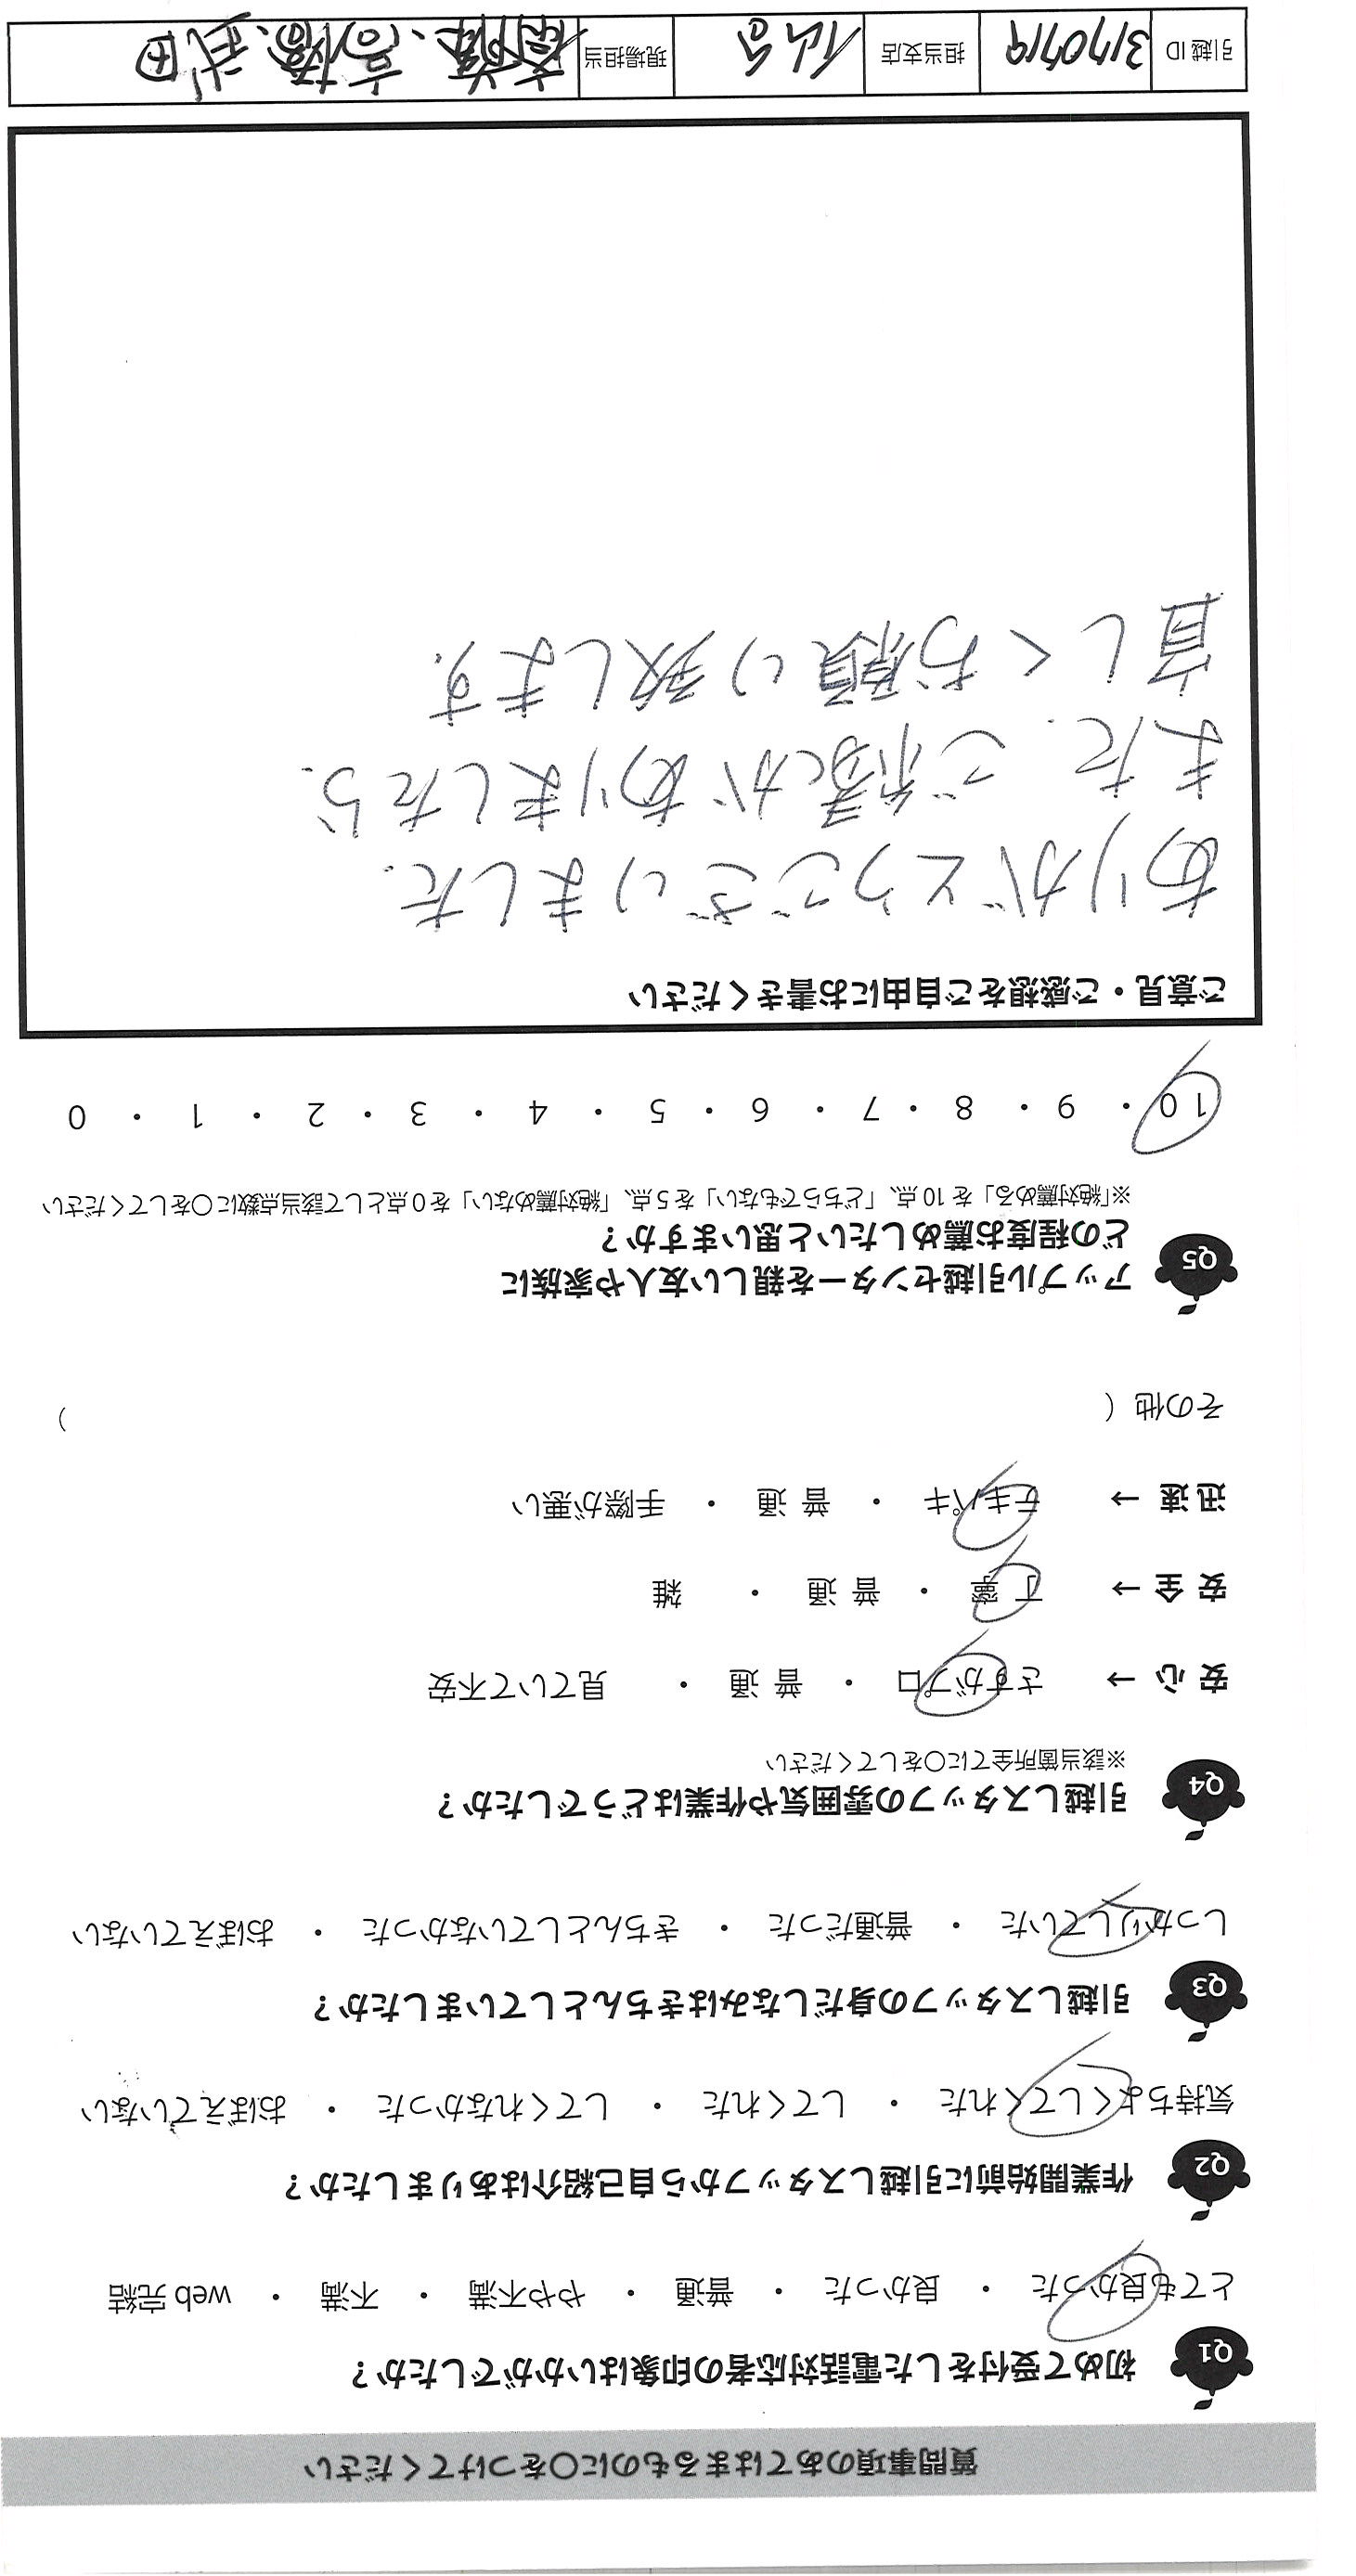 質問事項のあてはまるものに○をつけてください
Q1 初めて受付をした電話対応者の印象はいかがでしたか？
とても良かった ・ 良かった ・ 普通 ・ やや不満 ・ 不満 ・ web 完結
Q2 作業開始前に引越しスタッフから自己紹介はありましたか？
気持ちよくしてくれた ・ してくれた ・ してくれなかった ・ おぼえていない
Q3 引越しスタッフの身だしなみはきちんとしていましたか？
しっかりしていた ・ 普通だった ・ きちんとしていなかった ・ おぼえていない
Q4 引越しスタッフの雰囲気や作業はどうでしたか？
※該当箇所全てに○をしてください
安 心 → さすがプロ ・ 普 通 ・ 見ていて不安
安 全 → 丁 寧 ・ 普 通 ・ 雑
迅 速 → テキパキ ・ 普 通 ・ 手際が悪い
その他（ ）
Q5 アップル引越センターを親しい友人や家族に
どの程度お薦めしたいと思いますか？
※「絶対薦める」を 10 点、「どちらでもない」を 5 点、「絶対薦めない」を 0 点として該当点数に○をしてください
10 ・ 9 ・ 8 ・ 7 ・ 6 ・ 5 ・ 4 ・ 3 ・ 2 ・ 1 ・ 0
ご意見・ご感想をご自由にお書きください
ありがとうございました.
また、ご縁がありましたら、
宜しくお願い致します.
引越 ID 3170719 担当支店 仙台 現場担当 高橋、武田